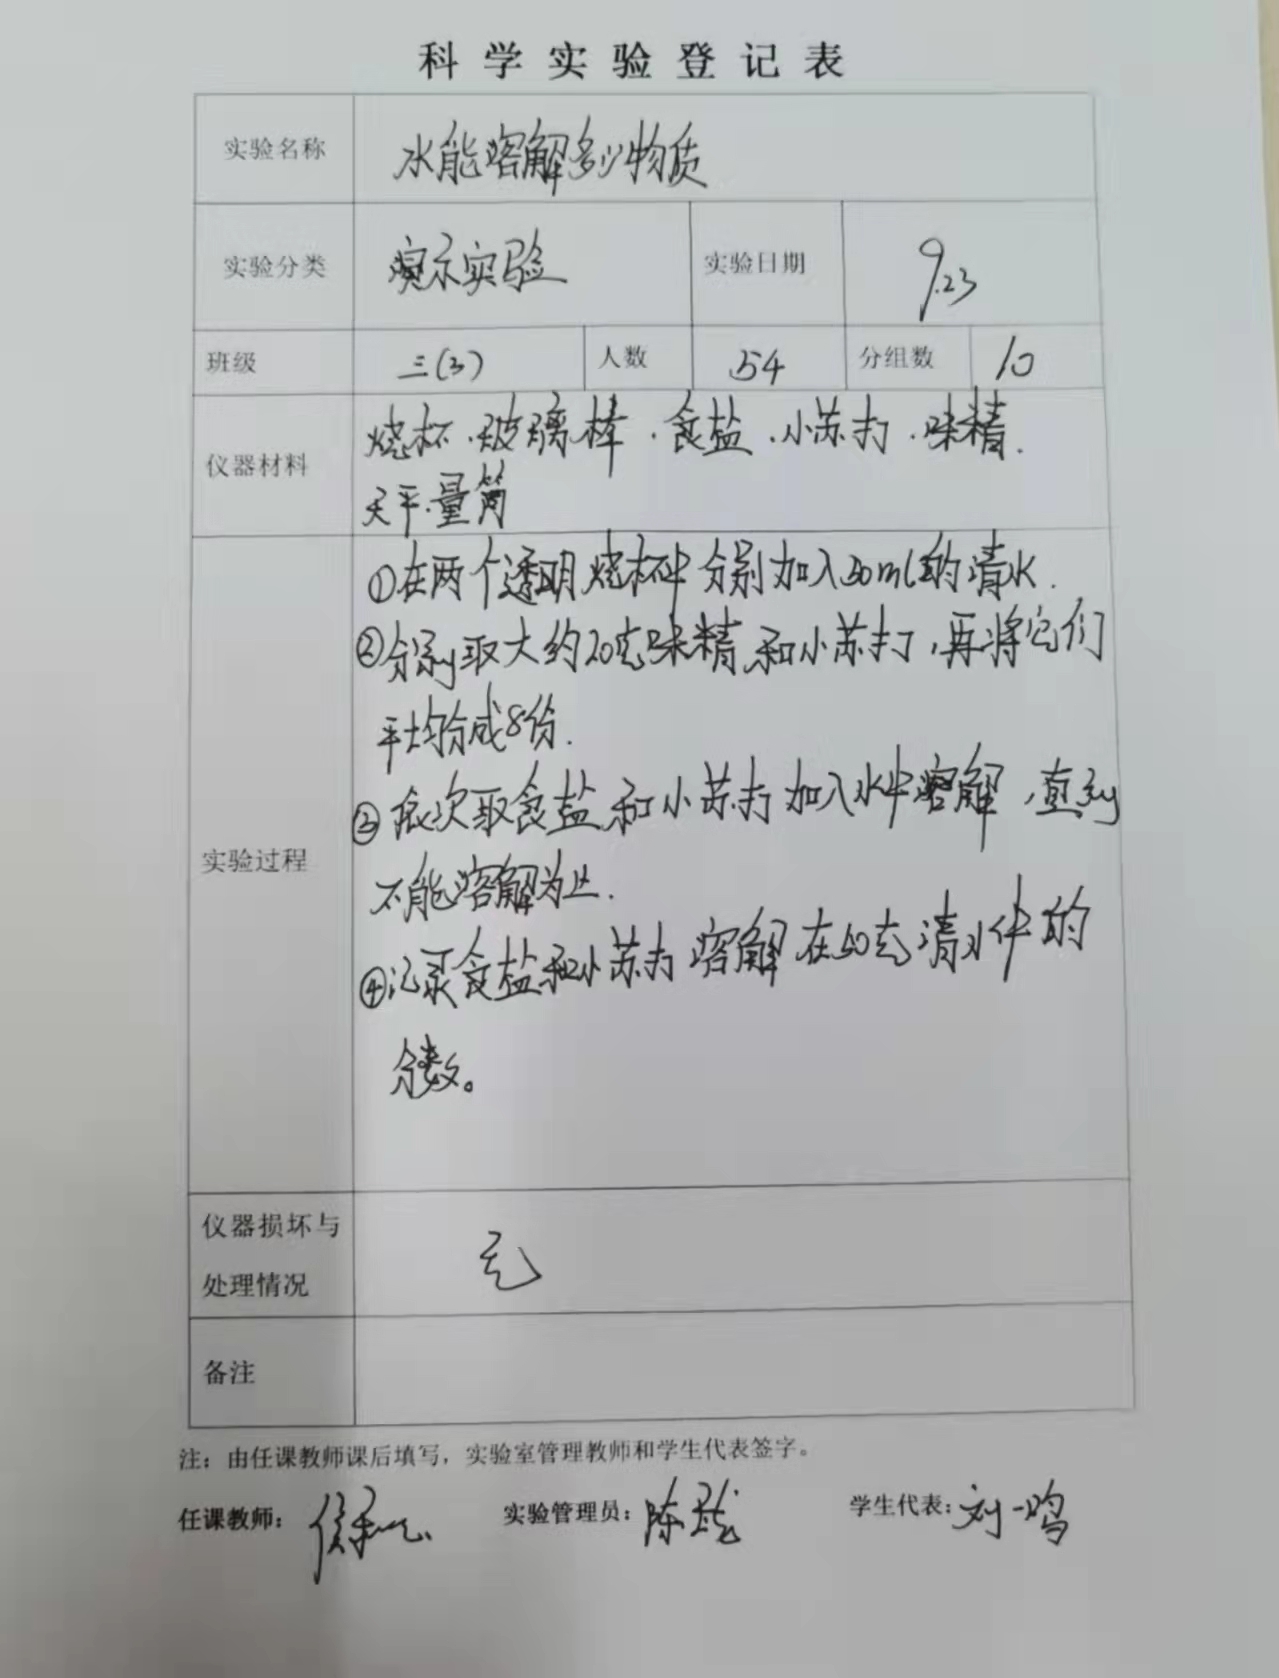 科学实验登记表
实验名称 水能溶解多少物质
实验分类 演示实验 实验日期 9.23
班级 三(3) 人数 54 分组数 10
仪器材料
烧杯.玻璃棒.食盐.小苏打.味精.
天平.量筒
实验过程
①在两个透明烧杯中分别加入50ml的清水.
②分别取大约20克味精和小苏打,再将它们
平均分成8份.
③依次取食盐和小苏打加入水中溶解,直到
不能溶解为止.
④记录食盐和小苏打溶解在50克清水中的
份数。
仪器损坏与
处理情况
无
备注
注：由任课教师课后填写，实验室管理教师和学生代表签字。
任课教师： 实验管理员：陈 学生代表：刘一鸣